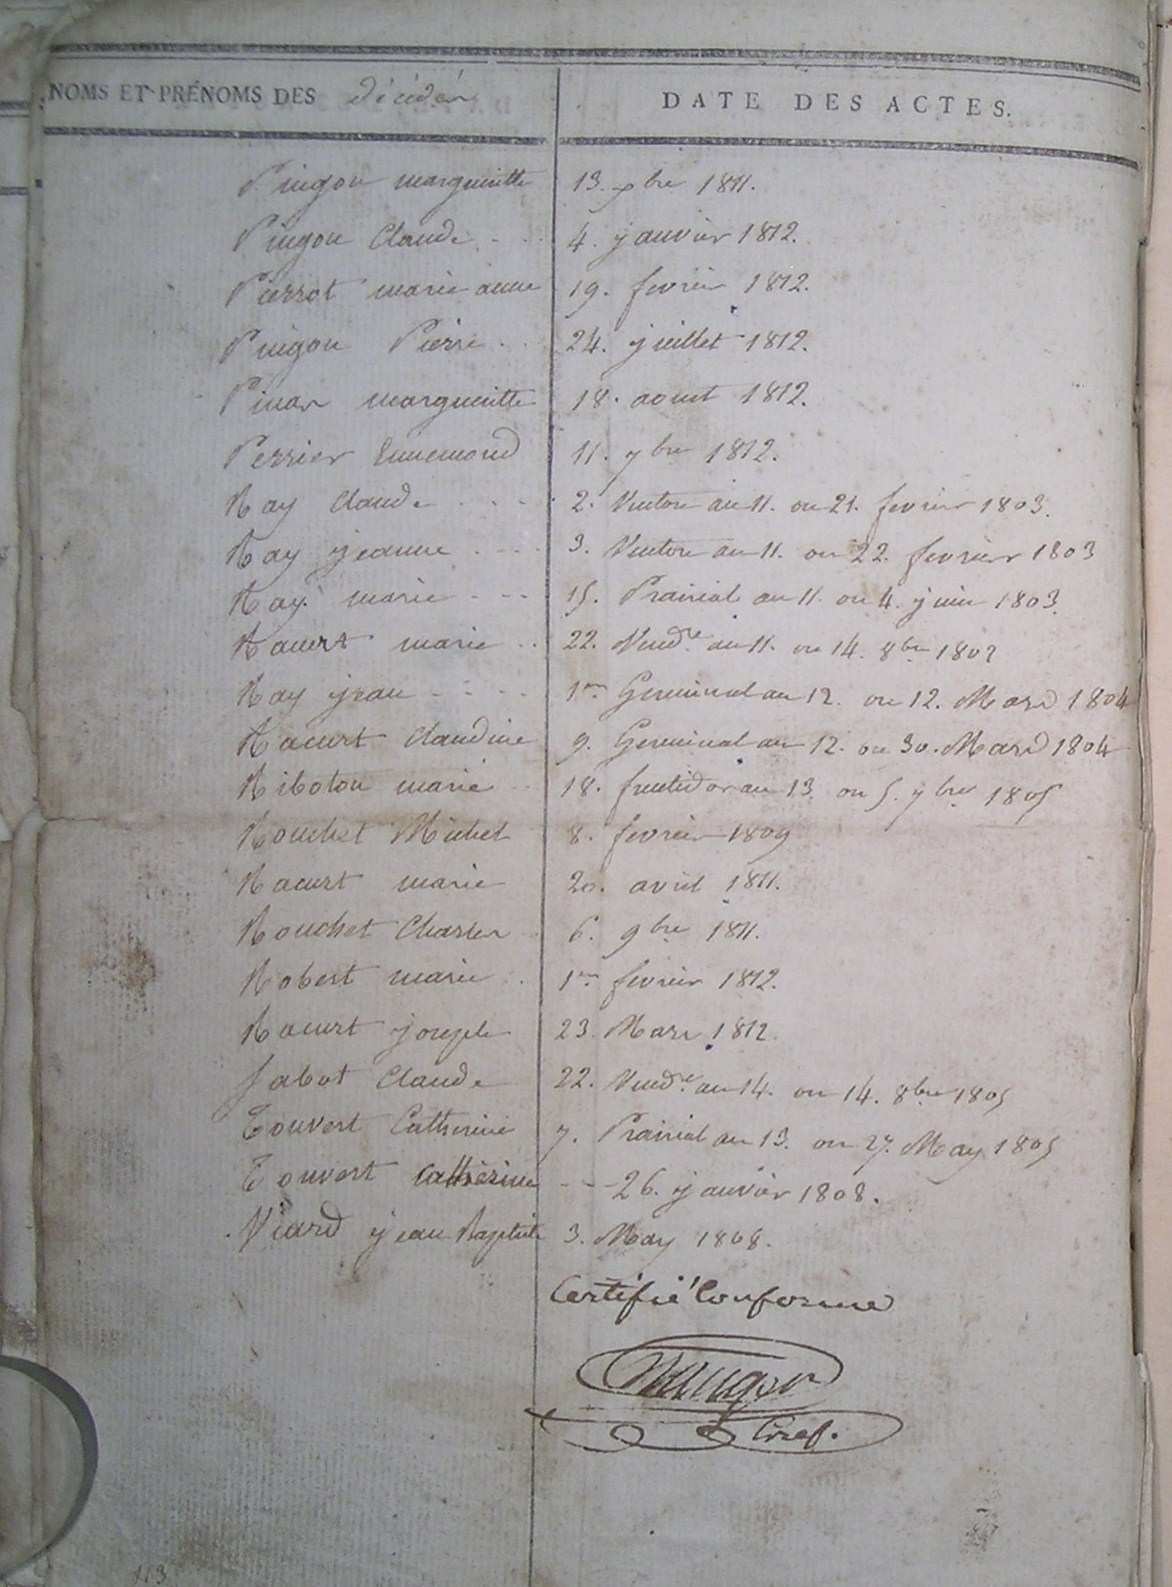 NOMS ET PRÉNOMS DES décédés DATE DES ACTES.
Pingon margueritte 13. xbre 1811.
Pingon Claude - - 4. janvier 1812.
Pierrot marie anne 19. fevrier 1812.
Pingon Pierre . . 24. juillet 1812.
Pinar margueritte 18. aout 1812.
Perrier Ennemond 11. 7bre 1812.
Ray Claude . - - 2. Ventose an 11. ou 21. fevrier 1803.
Ray jeanne . - - 3. Ventose an 11. ou 22. fevrier 1803
Ray marie - - - 15. Prairial an 11. ou 4. juin 1803.
Racurt marie . . 22. Vendre. an 11. ou 14. 8bre 1802
Ray jean - - - - 1er Germinal an 12. ou 12. Mars 1804
Racurt Claudine 9. Germinal an 12. ou 30. Mars 1804
Ribolon marie . . 18. fructidor an 13. ou 5. 7bre 1805
Rouchet Michel 8. fevrier 1809
Racurt marie 20. avril 1811.
Rouchet Charles 6. 9bre 1811.
Robert marie . 1er fevrier 1812.
Racurt joseph 23. Mars 1812.
Sabot Claude 22. Vendre. an 14. ou 14. 8bre 1805
Touvert Catherine 7. Prairial an 13. ou 27. May 1805
Touvert Catherine - - 26. janvier 1808.
Viard jean Baptiste 3. May 1808.
Certifié Conforme
Gref.
113